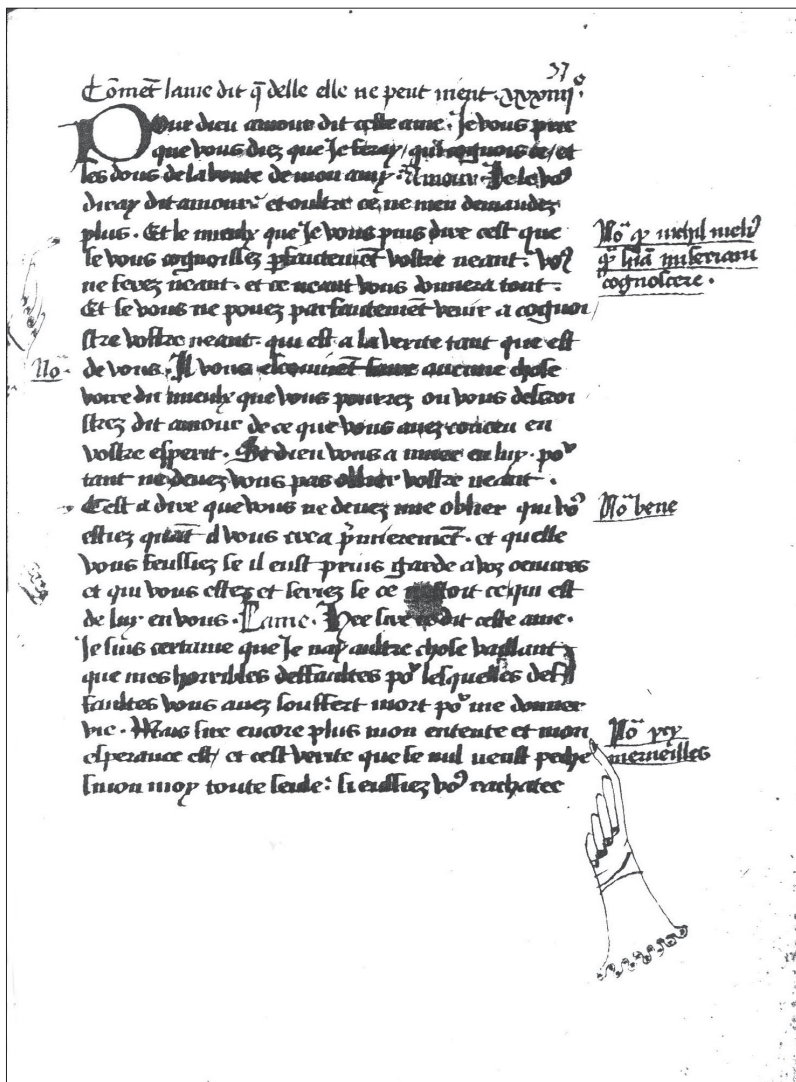 37
Cōmēt lame dit q̄ delle elle ne peut nient. xxxiiij°
Pour dieu amour dit ceste ame. Je vous prie
que vous diez que Je feray / qui cognois ce / et
les dons de la bonte de mon amy. Amour. Je le voꝰ
diray dit amour et oultre ce ne men demandez
plus. Et le mieulx que Je vous puis dire cest que
se vous cognoissez pfaitement vostre neant. voꝰ
ne ferez neant. et ce neant vous donnera tout.
Et se vous ne pouez parfaitemēt venir a cognoi
stre vostre neant. qui est a la verite tant que est
No de vous. Il vous escouuiēt faire aucune chose
voire du mieulx que vous pourrez ou vous descroi
strez dit amour de ce que vous auez conceu en
vostre esperit. Se dieu vous a muee en luy. poʳ
tant ne deuez vous pas oblier vostre neant.
Cest a dire que vous ne deuez mie oblier qui voꝰ
estiez quāt il vous crea p̄mierement. et quelle
vous feussiez se il eust prins garde a voz oeuures
et qui vous estez et seriez se ce nestoit ce qui est
de luy en vous. Lame. Hee sire dit ceste ame.
Je suis certaine que Je nay aultre chose vaillant
que mes horribles deffaultes poʳ lesquelles def
faultes vous auez souffert mort poʳ me donner
vie. Mais sire encore plus mon entente et mon
esperance est / et cest verite que se nul neust peche
sinon moy toute seule: si eussiez voꝰ rachatee
No q nichil meliꝰ
q suā miseriam
cognoscere.
No bene
No icy
merueilles